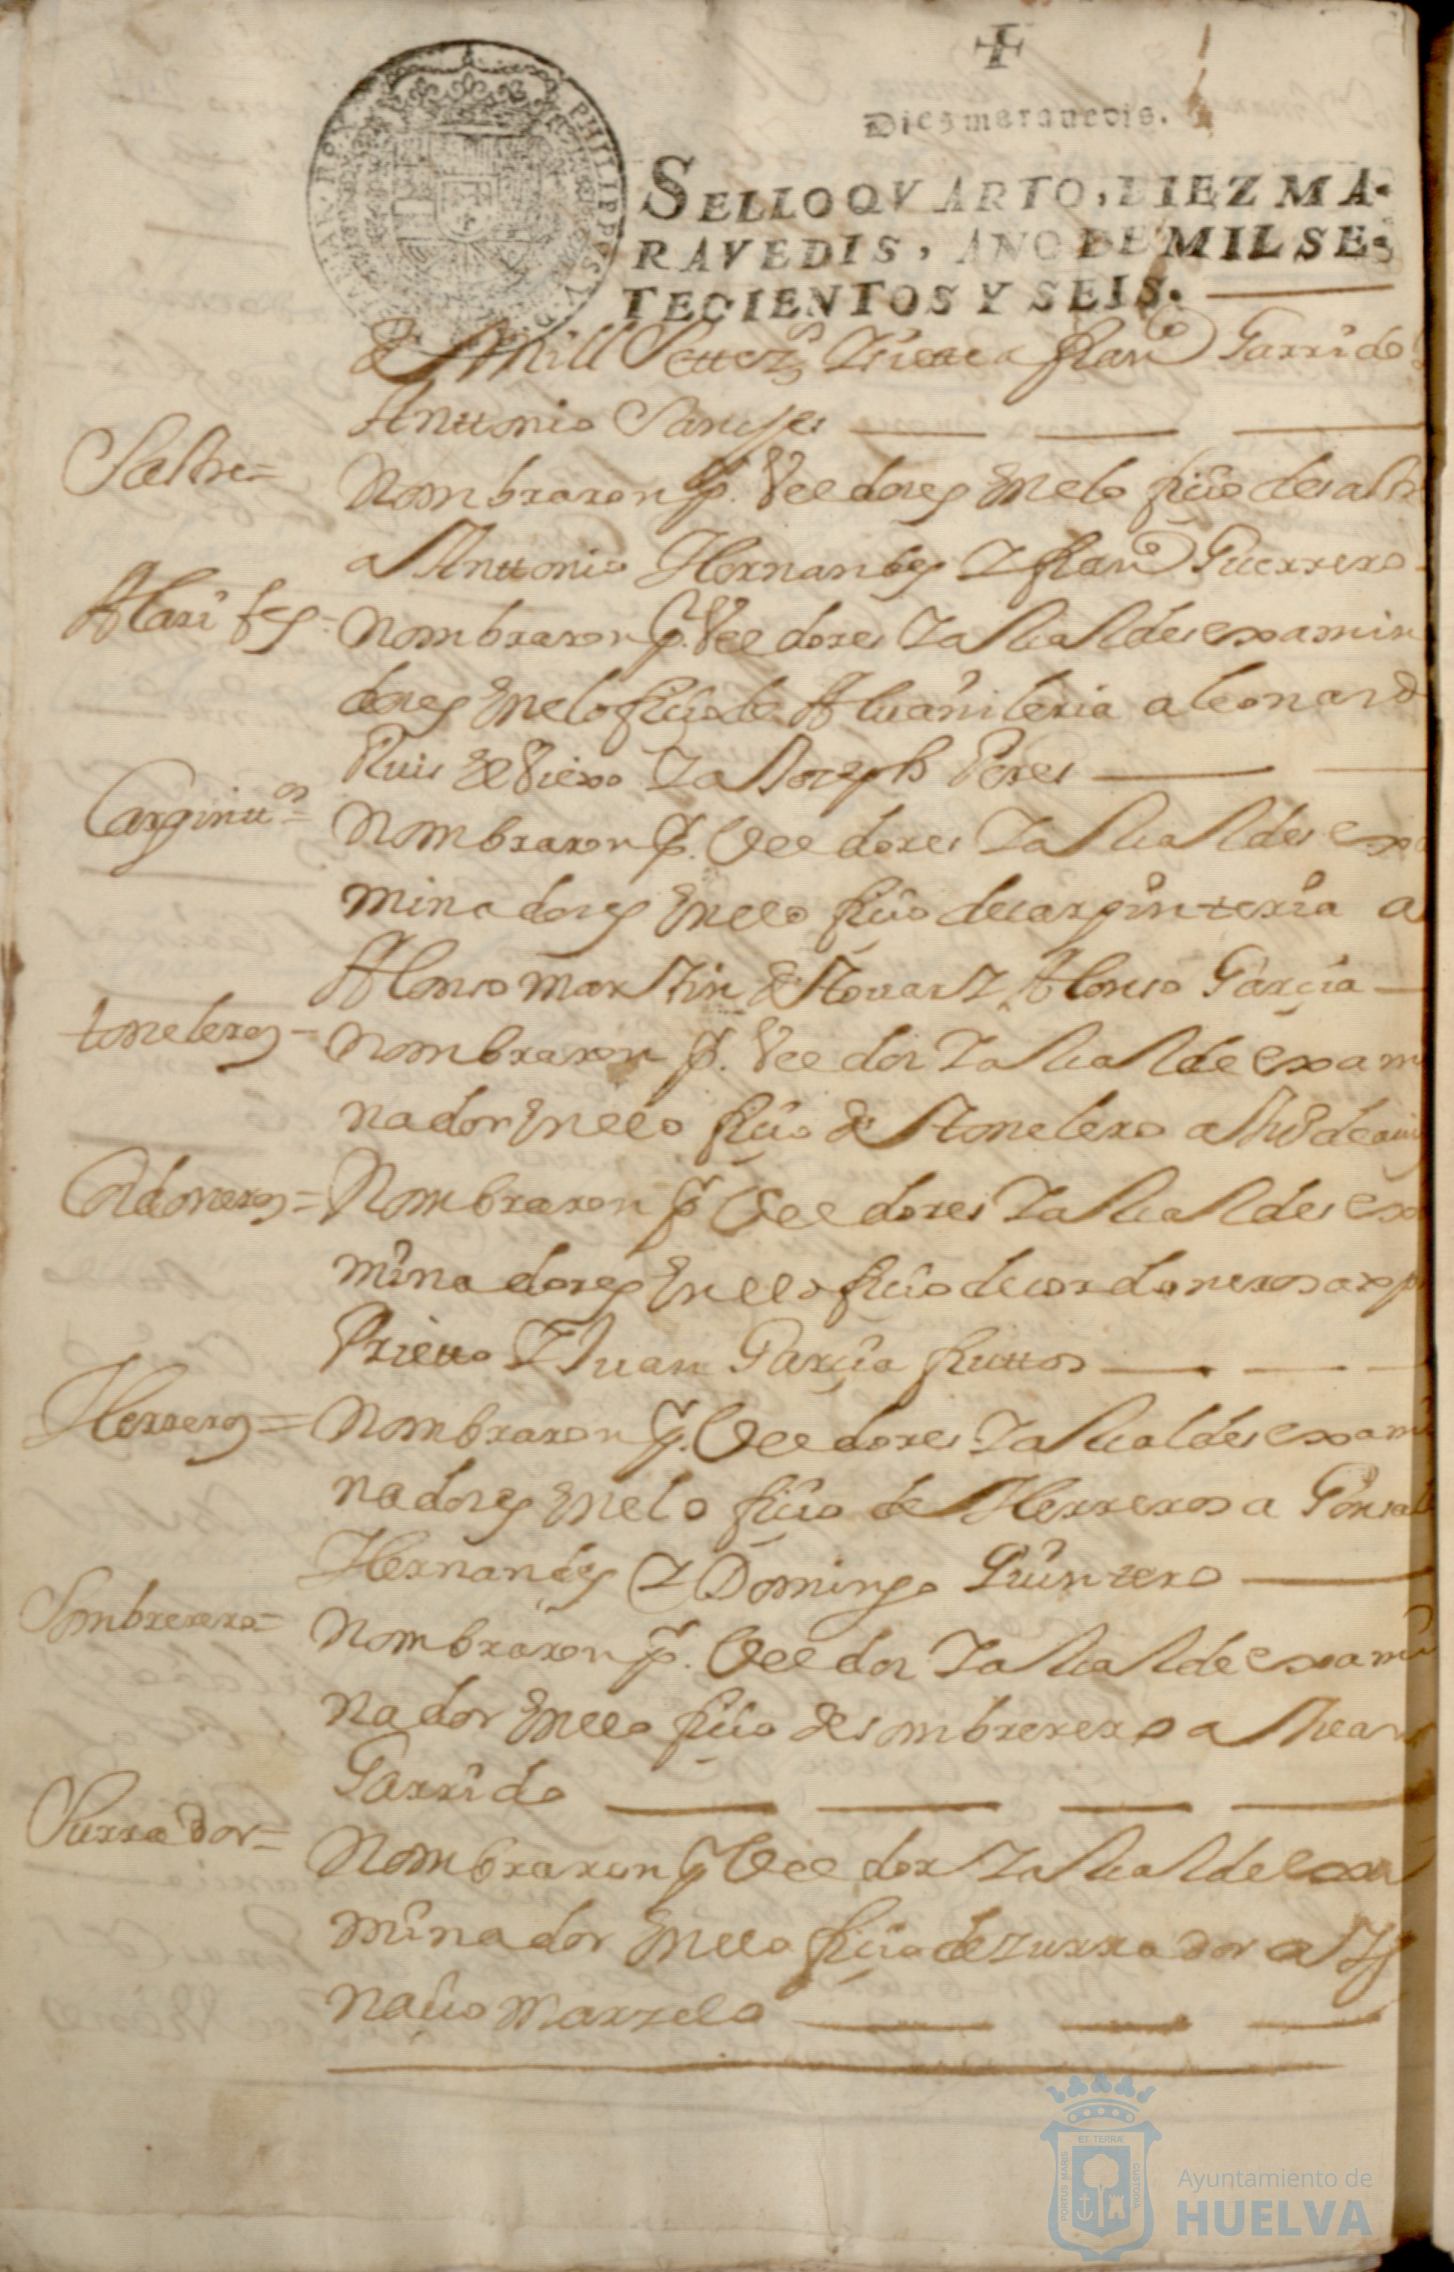 Diez marauedis.
SELLO QVARTO, DIEZ MA-
RAVEDIS, AÑO DE MIL SE-
TECIENTOS Y SEIS.
PHILIPPVS V D
HISPANIAR REX
de Mill Settez.os Treitta a fran.co Garrido
Anttonio Sanches
Sastre= Nombraron p.r Veedores En el oficio de sastre
a Anttonio Hernandes Y fran.co Guerrero
Alarifes= Nombraron p.r Veedores Y alcaldes examin
dores En el oficio de Aluanileria a leonardo
Ruis de Viexo Y a Joseph Peres
Carpintt.os= Nombraron p.r Veedores Y alcaldes exa
minadores En el oficio de carpinteria a
Alonso martin de Touar Y Alonso Garcia
toneleros= Nombraron p.r Veedor Y alcalde exami
nador En el oficio de tonelero a
Cordoneros= Nombraron p.r Veedores Y alcaldes exa
minadores En el oficio de cordoneros a xp
Prietto Y Juan Garcia fruttos
Herreros= Nombraron p.r Veedores Y alcaldes exami
nadores En el oficio de Herreros a Gonsalo
Hernandes Y Domingo Quintero
Sombrerero= Nombraron p.r Veedor Y alcalde exami
nador En el oficio de sombrerero a Juan
Garrido
Surrador= Nombraron p.r Veedor Y alcalde exa
minador En el oficio de zurrador a Yg
nacio Marzelo
PORTUS MARIS ET TERRÆ CUSTODIA
Ayuntamiento de
HUELVA